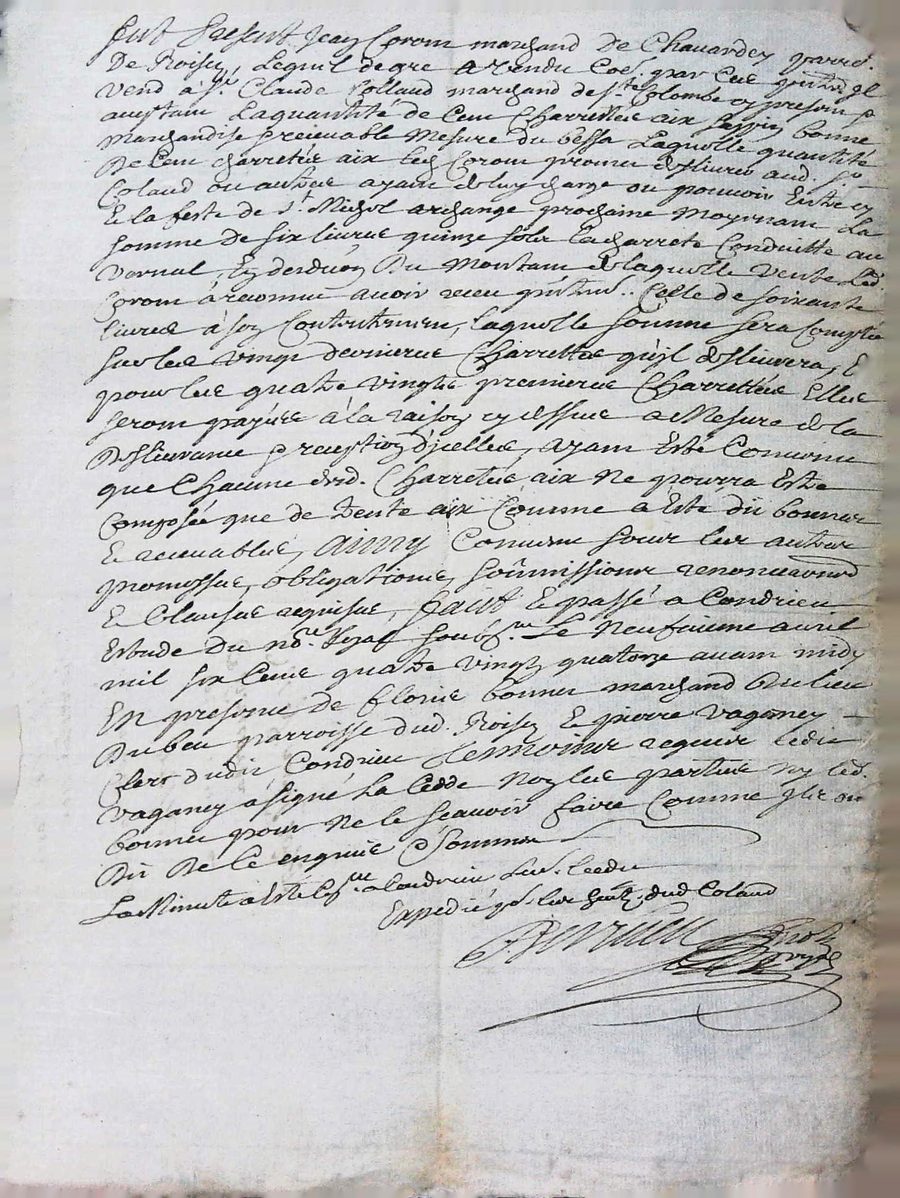 fut present Jean Corom marchand De Chauardey parre.
De Roisey, Lequel de gre a vendu Coe par Ces pntes
vend à Sr. Claude Collaud marchand de Ste Colombe cy presen
acceptam La quantité de Cem Charretées aix sappin bonne
Marchandise receuable Mesure du bessa Laquelle quantité
De Cem charretées aix led Corom promet deslivrer aud. Sr
Colaud ou autres ayam de luy charge ou pouvoir Entre cy
E la feste de St. Michel archange prochaine Moyenam La
somme De six livres quinze solz la charreté Conduitte au
Vernal, En deduction Du Montam de laquelle vente led.
Corom à reconnu avoir receu Celle de soixante
livres à son Contentemem, laquelle somme sera Comptée
sur les vingt dernieres Charrettées qu'jl deslivrera, E
pour les quatre vingts premieres Charrettées Elles
serom payées à la raison cy dessus a Mesure de la
Deslivrance reception d'jcelles, ayam Esté Convenu
que Chacune desd. Charretées aix Ne pourra Estre
Composée que de trente aix Comme a Esté dit bonnes
E receuables, ainsy Convenu sous les autres
promesses, obligations, soûmissions renonciaons
E Clauses requises, faict E passé a Condrieu
Estude du nore. Royal soubse. Le Neufiesme avril
mil six Cens quatre vingtz quatorze avam midy
En presence de Florie bonner marchand Du lieu
Dubeu parroisse dud. Roisey E pierre Vaganey
Clerc dudit Condrieu tesmoins requis ledit
Vaganey a signé La Cedde Non les parties Ny led.
bonner pour Ne le scavoir faire Comme jlz on
Dit De Ce enquis E sommes
La Minute à esté a Condrieu
Expedié dud Colaud